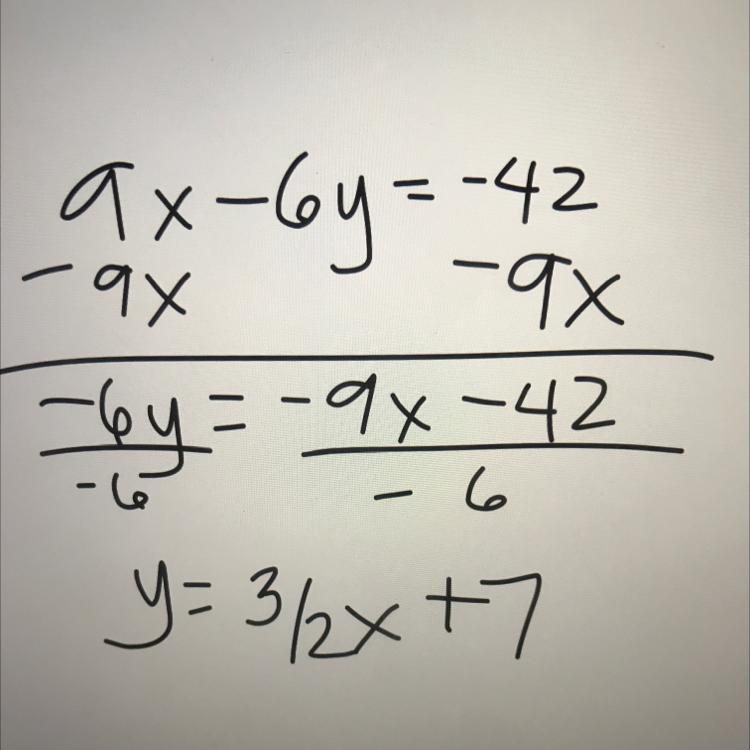 9x - 6y = -42
- 9x - 9x
-6y = -9x - 42
-6 - 6
y = 3/2x + 7